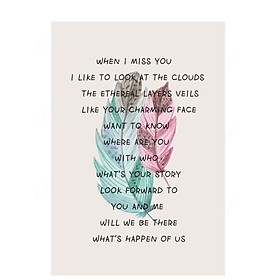 WHEN I MISS YOU
I LIKE TO LOOK AT THE CLOUDS
THE ETHEREAL LAYERS VEILS
LIKE YOUR CHARMING FACE
WANT TO KNOW
WHERE ARE YOU
WITH WHO
WHAT'S YOUR STORY
LOOK FORWARD TO
YOU AND ME
WILL WE BE THERE
WHAT'S HAPPEN OF US